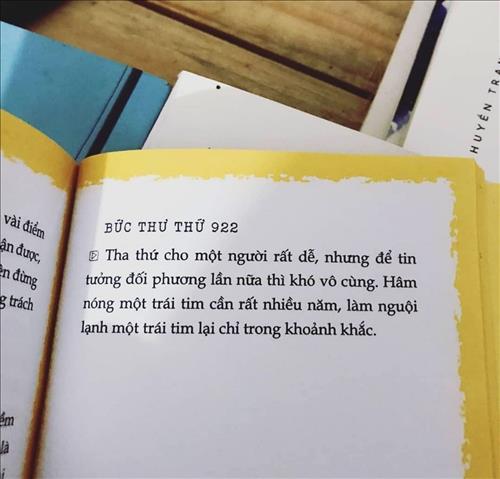 HUYỀN TRAN
vài điểm
trách
BỨC THƯ THỨ 922
Tha thứ cho một người rất dễ, nhưng để tin
tưởng đối phương lần nữa thì khó vô cùng. Hâm
nóng một trái tim cần rất nhiều năm, làm nguội
lạnh một trái tim lại chỉ trong khoảnh khắc.
là